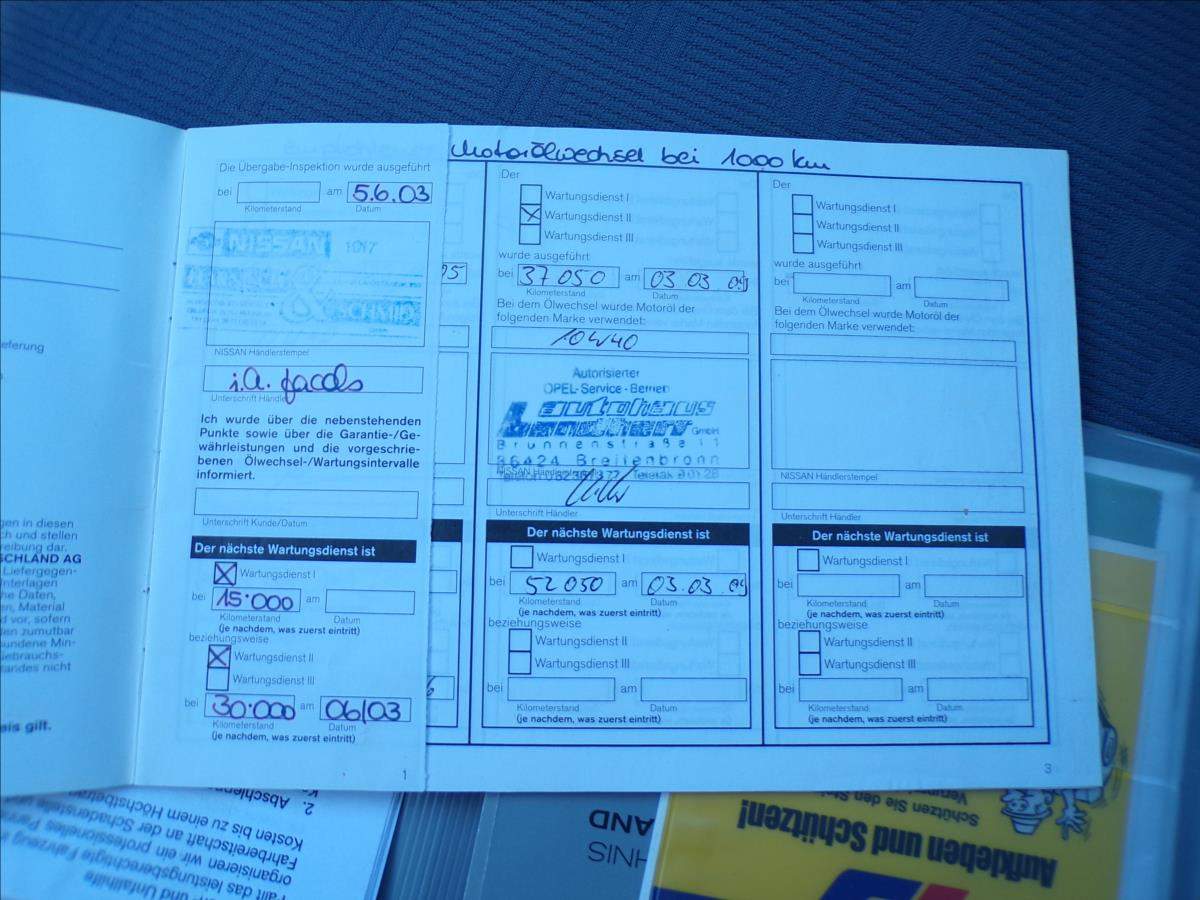 Motorölwechsel bei 1000 km
Die Übergabe-Inspektion wurde ausgeführt
bei am 5.6.03
Kilometerstand Datum
NISSAN 1017
SCHMID
NISSAN Händlerstempel
i.A. Jacobs
Unterschrift Händler
Ich wurde über die nebenstehenden
Punkte sowie über die Garantie-/Ge-
währleistungen und die vorgeschrie-
benen Ölwechsel-/Wartungsintervalle
informiert.
Unterschrift Kunde/Datum
Der nächste Wartungsdienst ist
Wartungsdienst I
bei 15.000 am
Kilometerstand Datum
(je nachdem, was zuerst eintritt)
beziehungsweise
Wartungsdienst II
Wartungsdienst III
bei 30.000 am 06/03
Kilometerstand Datum
(je nachdem, was zuerst eintritt)
1
05
6
Der
Wartungsdienst I
Wartungsdienst II
Wartungsdienst III
wurde ausgeführt
bei 37 050 am 03 03
Kilometerstand Datum
Bei dem Ölwechsel wurde Motoröl der
folgenden Marke verwendet:
10W40
Autorisierter
OPEL-Service-
autohaus
GmbH
Brunnenstraße 11
86424
NISSAN Händlerstempel
Der nächste Wartungsdienst ist
Wartungsdienst I
bei 52 050 am 03.03.
Kilometerstand Datum
(je nachdem, was zuerst eintritt)
beziehungsweise
Wartungsdienst II
Wartungsdienst III
bei am
Kilometerstand Datum
(je nachdem, was zuerst eintritt)
Der
Wartungsdienst I
Wartungsdienst II
Wartungsdienst III
wurde ausgeführt
bei am
Kilometerstand Datum
Bei dem Ölwechsel wurde Motoröl der
folgenden Marke verwendet:
NISSAN Händlerstempel
Unterschrift Händler
Der nächste Wartungsdienst ist
Wartungsdienst I
bei am
Kilometerstand Datum
(je nachdem, was zuerst eintritt)
beziehungsweise
Wartungsdienst II
Wartungsdienst III
bei am
Kilometerstand Datum
(je nachdem, was zuerst eintritt)
3
eferung
gen in diesen
ch und stellen
reibung dar.
SCHLAND AG
Liefergegen-
Unterlagen
he Daten,
en, Material
d vor, sofern
den zumutbar
bundene Min-
Gebrauchs-
tandes nicht
eis gilt.
Aufkleben und Schützen!
Schützen Sie den
Kosten bis zu einem Höchstbetra
Fahrbereitschaft an der Schadenstelle
organisieren wir ein professionelles